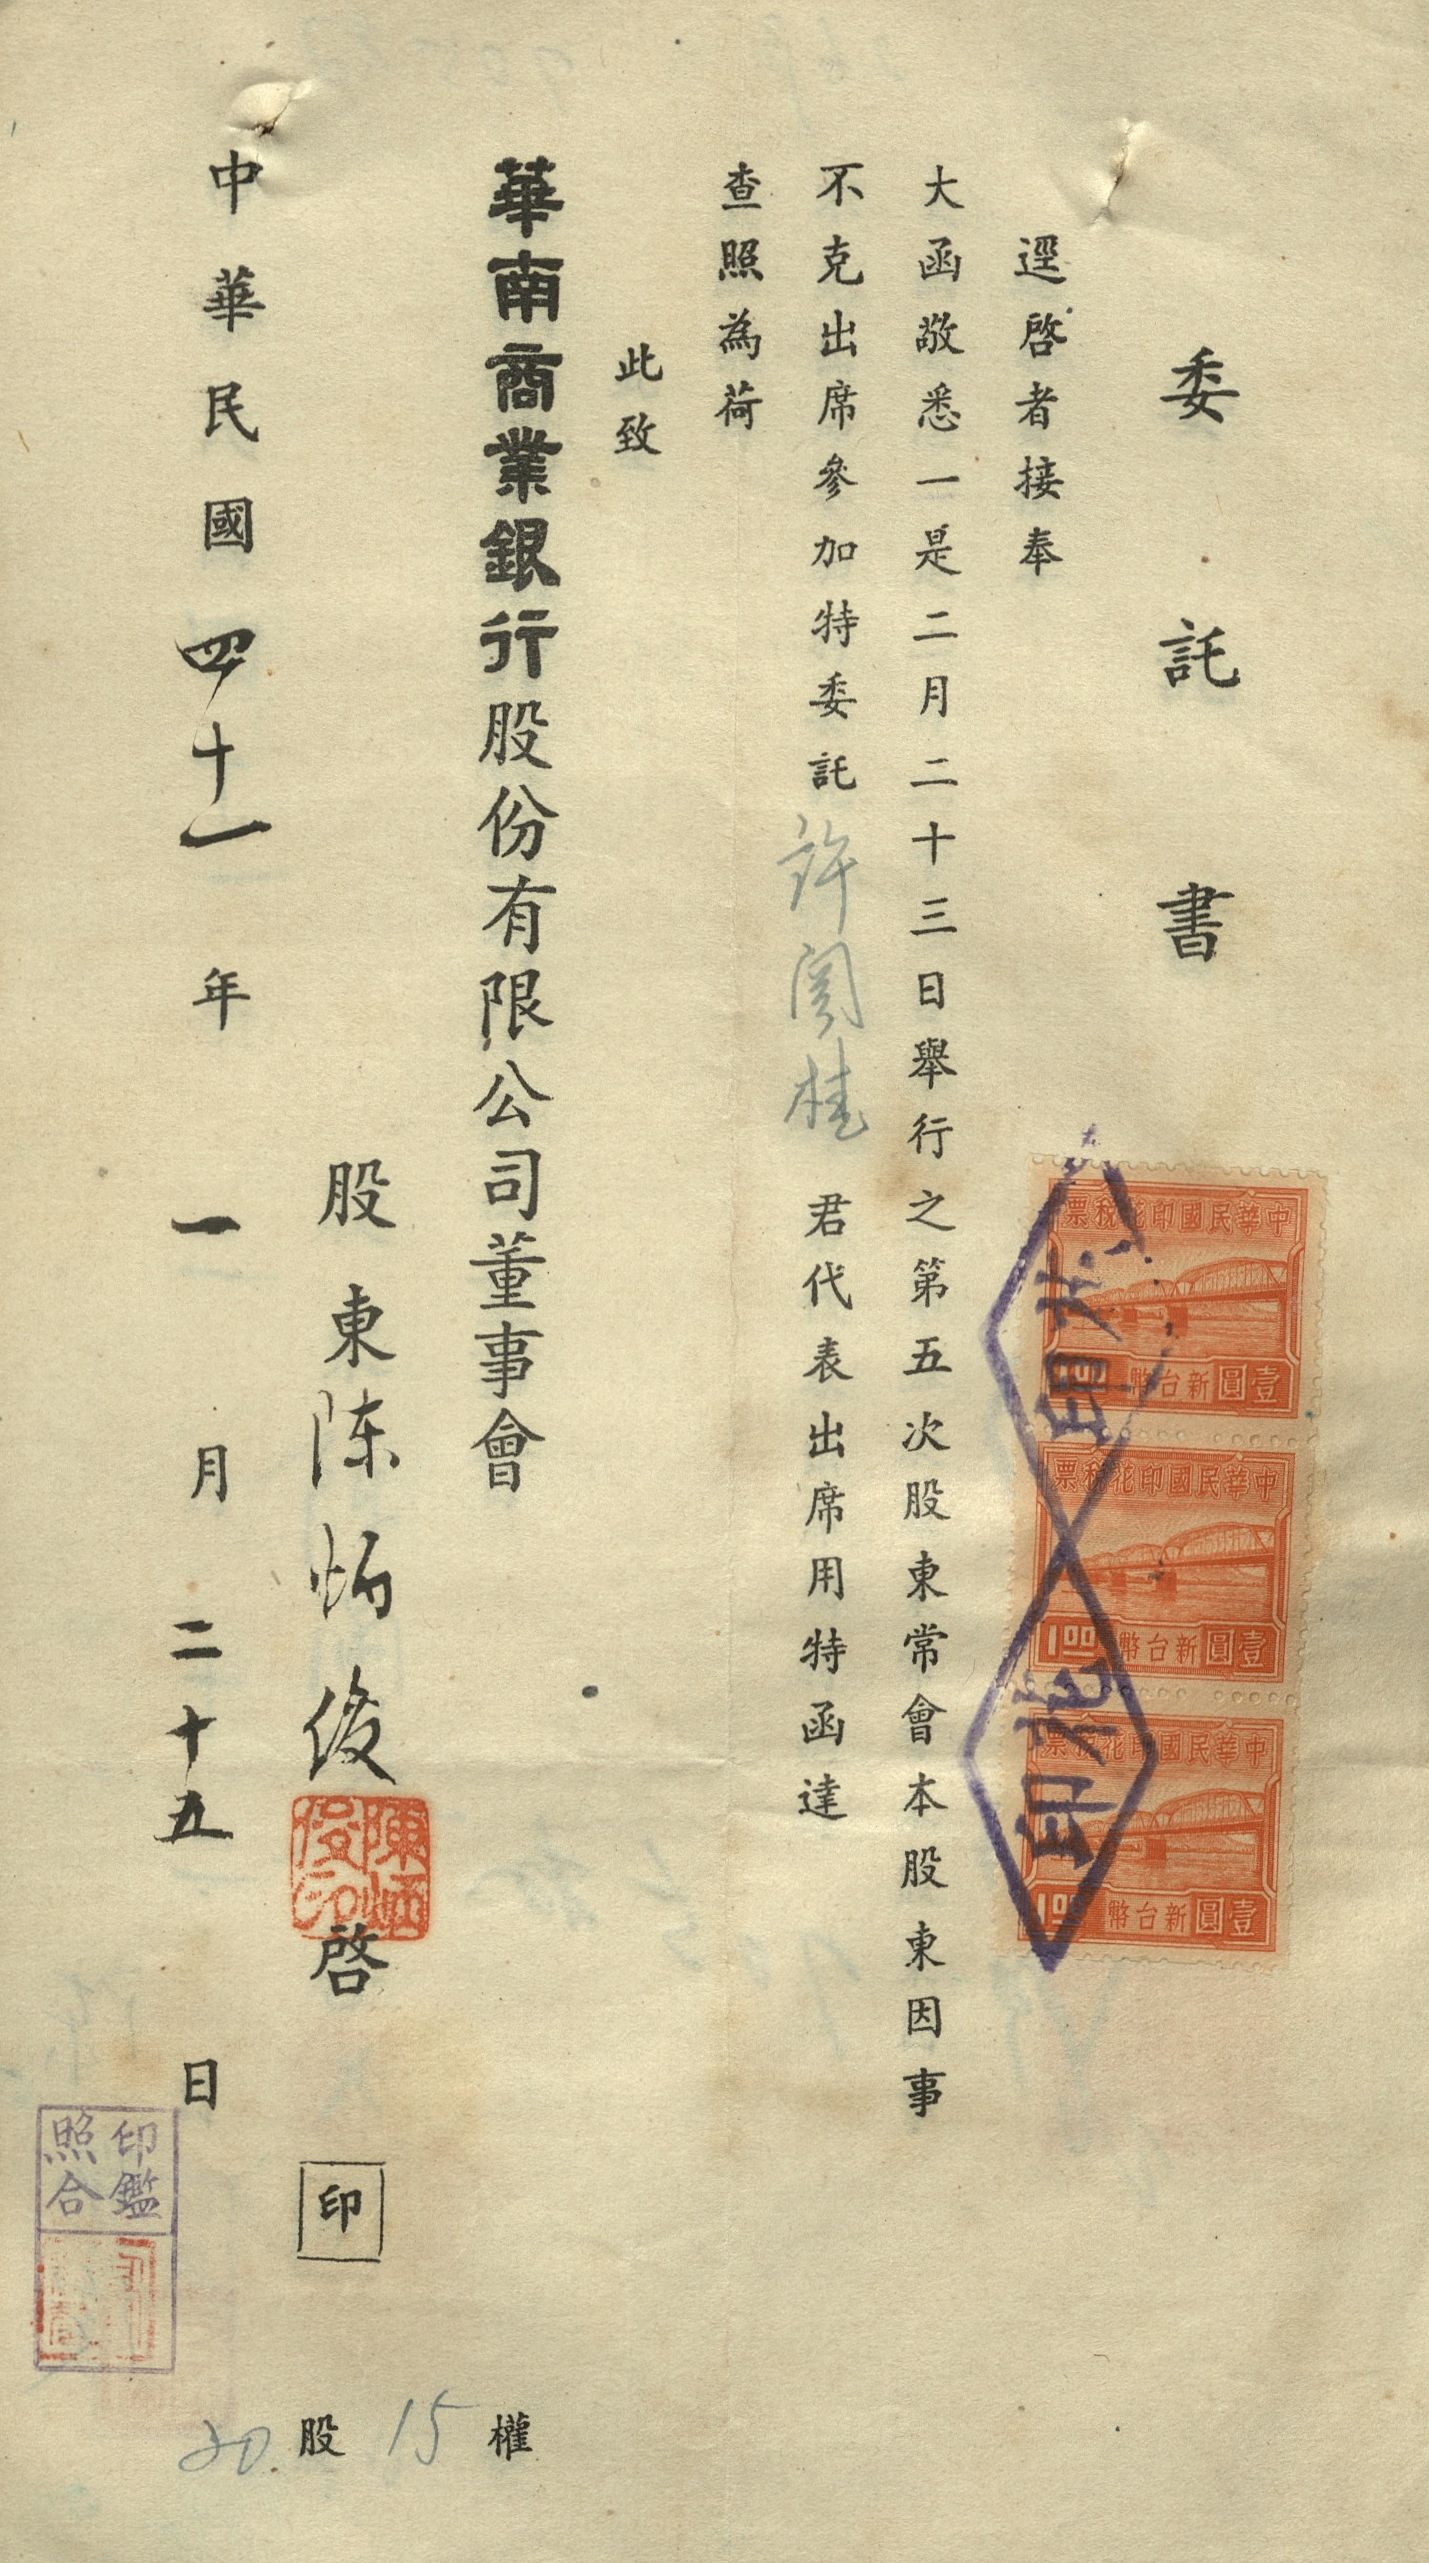 委託書
逕啓者接奉
大函敬悉一是二月二十三日舉行之第五次股東常會本股東因事
不克出席參加特委託許閣桂君代表出席用特函達
查照為荷
此致
華南商業銀行股份有限公司董事會
股東陈炳俊啓印
中華民國四十一年一月二十五日
權15
股20
中華民國印花稅票
壹圓新台幣
中華民國印花稅票
壹圓新台幣1.00
中華民國印花稅票
壹圓新台幣1.00
印花
印花
陳炳俊印
印鑑照合